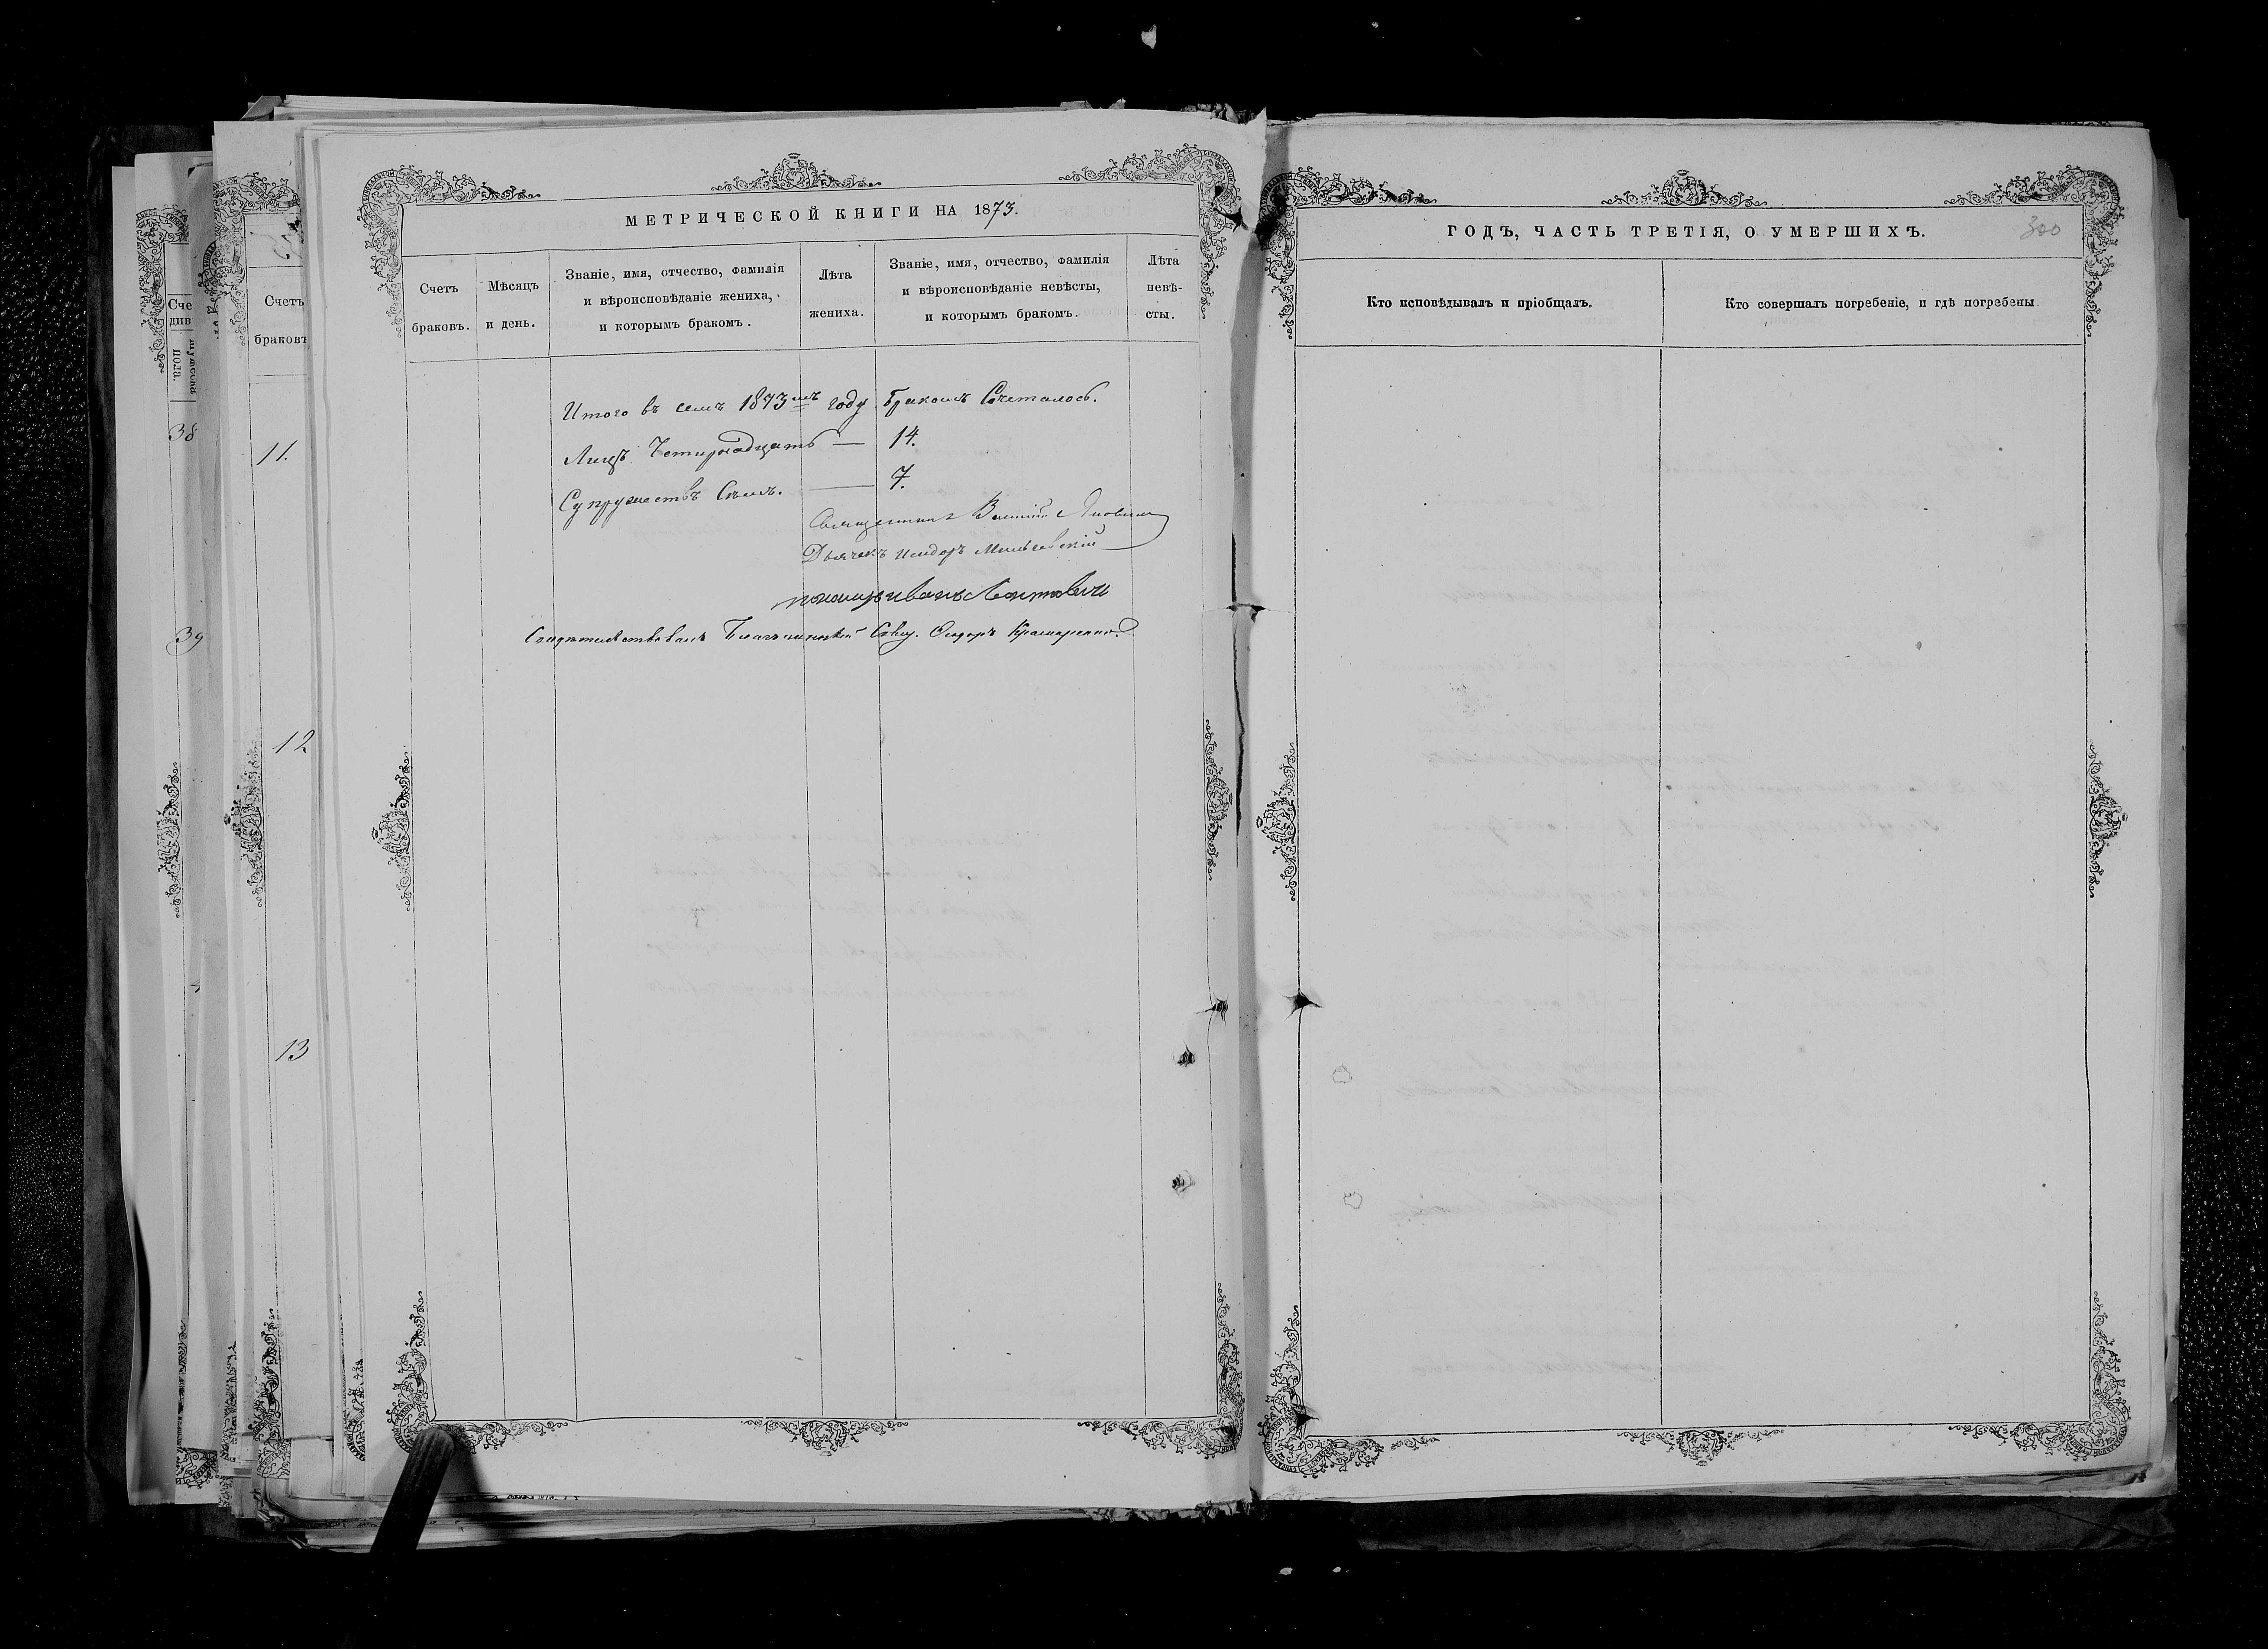 МЕТРИЧЕСКОЙ КНИГИ НА 1873.
Счетъ браковъ.
Мѣсяцъ и день.
Званіе, имя, отчество, фамилія
и вѣроисповѣданіе жениха,
и которымъ бракомъ.
Лѣта жениха.
Званіе, имя, отчество, фамилія
и вѣроисповѣданіе невѣсты,
и которымъ бракомъ.
Лѣта невѣ-
сты.
Итого въ семъ 1873мъ году бракомъ Сочеталось.
Лицъ Четирнадцать — 14.
Супружествъ Семь. — 7.
Священникъ
Дьячекъ Исидоръ
пономарь иванъ Леонтовичъ
Свидѣтельствовалъ Благочинный Свящ.
ГОДЪ, ЧАСТЬ ТРЕТІЯ, О УМЕРШИХЪ.
300
Кто исповѣдывалъ и пріобщалъ.
Кто совершалъ погребеніе, и гдѣ погребены.
Сче
див
пола.
38
39
Счетъ
браковъ
11.
12
13